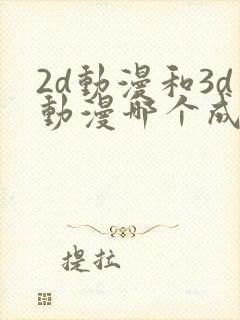 2d動漫和3d
動漫哪个成
提拉